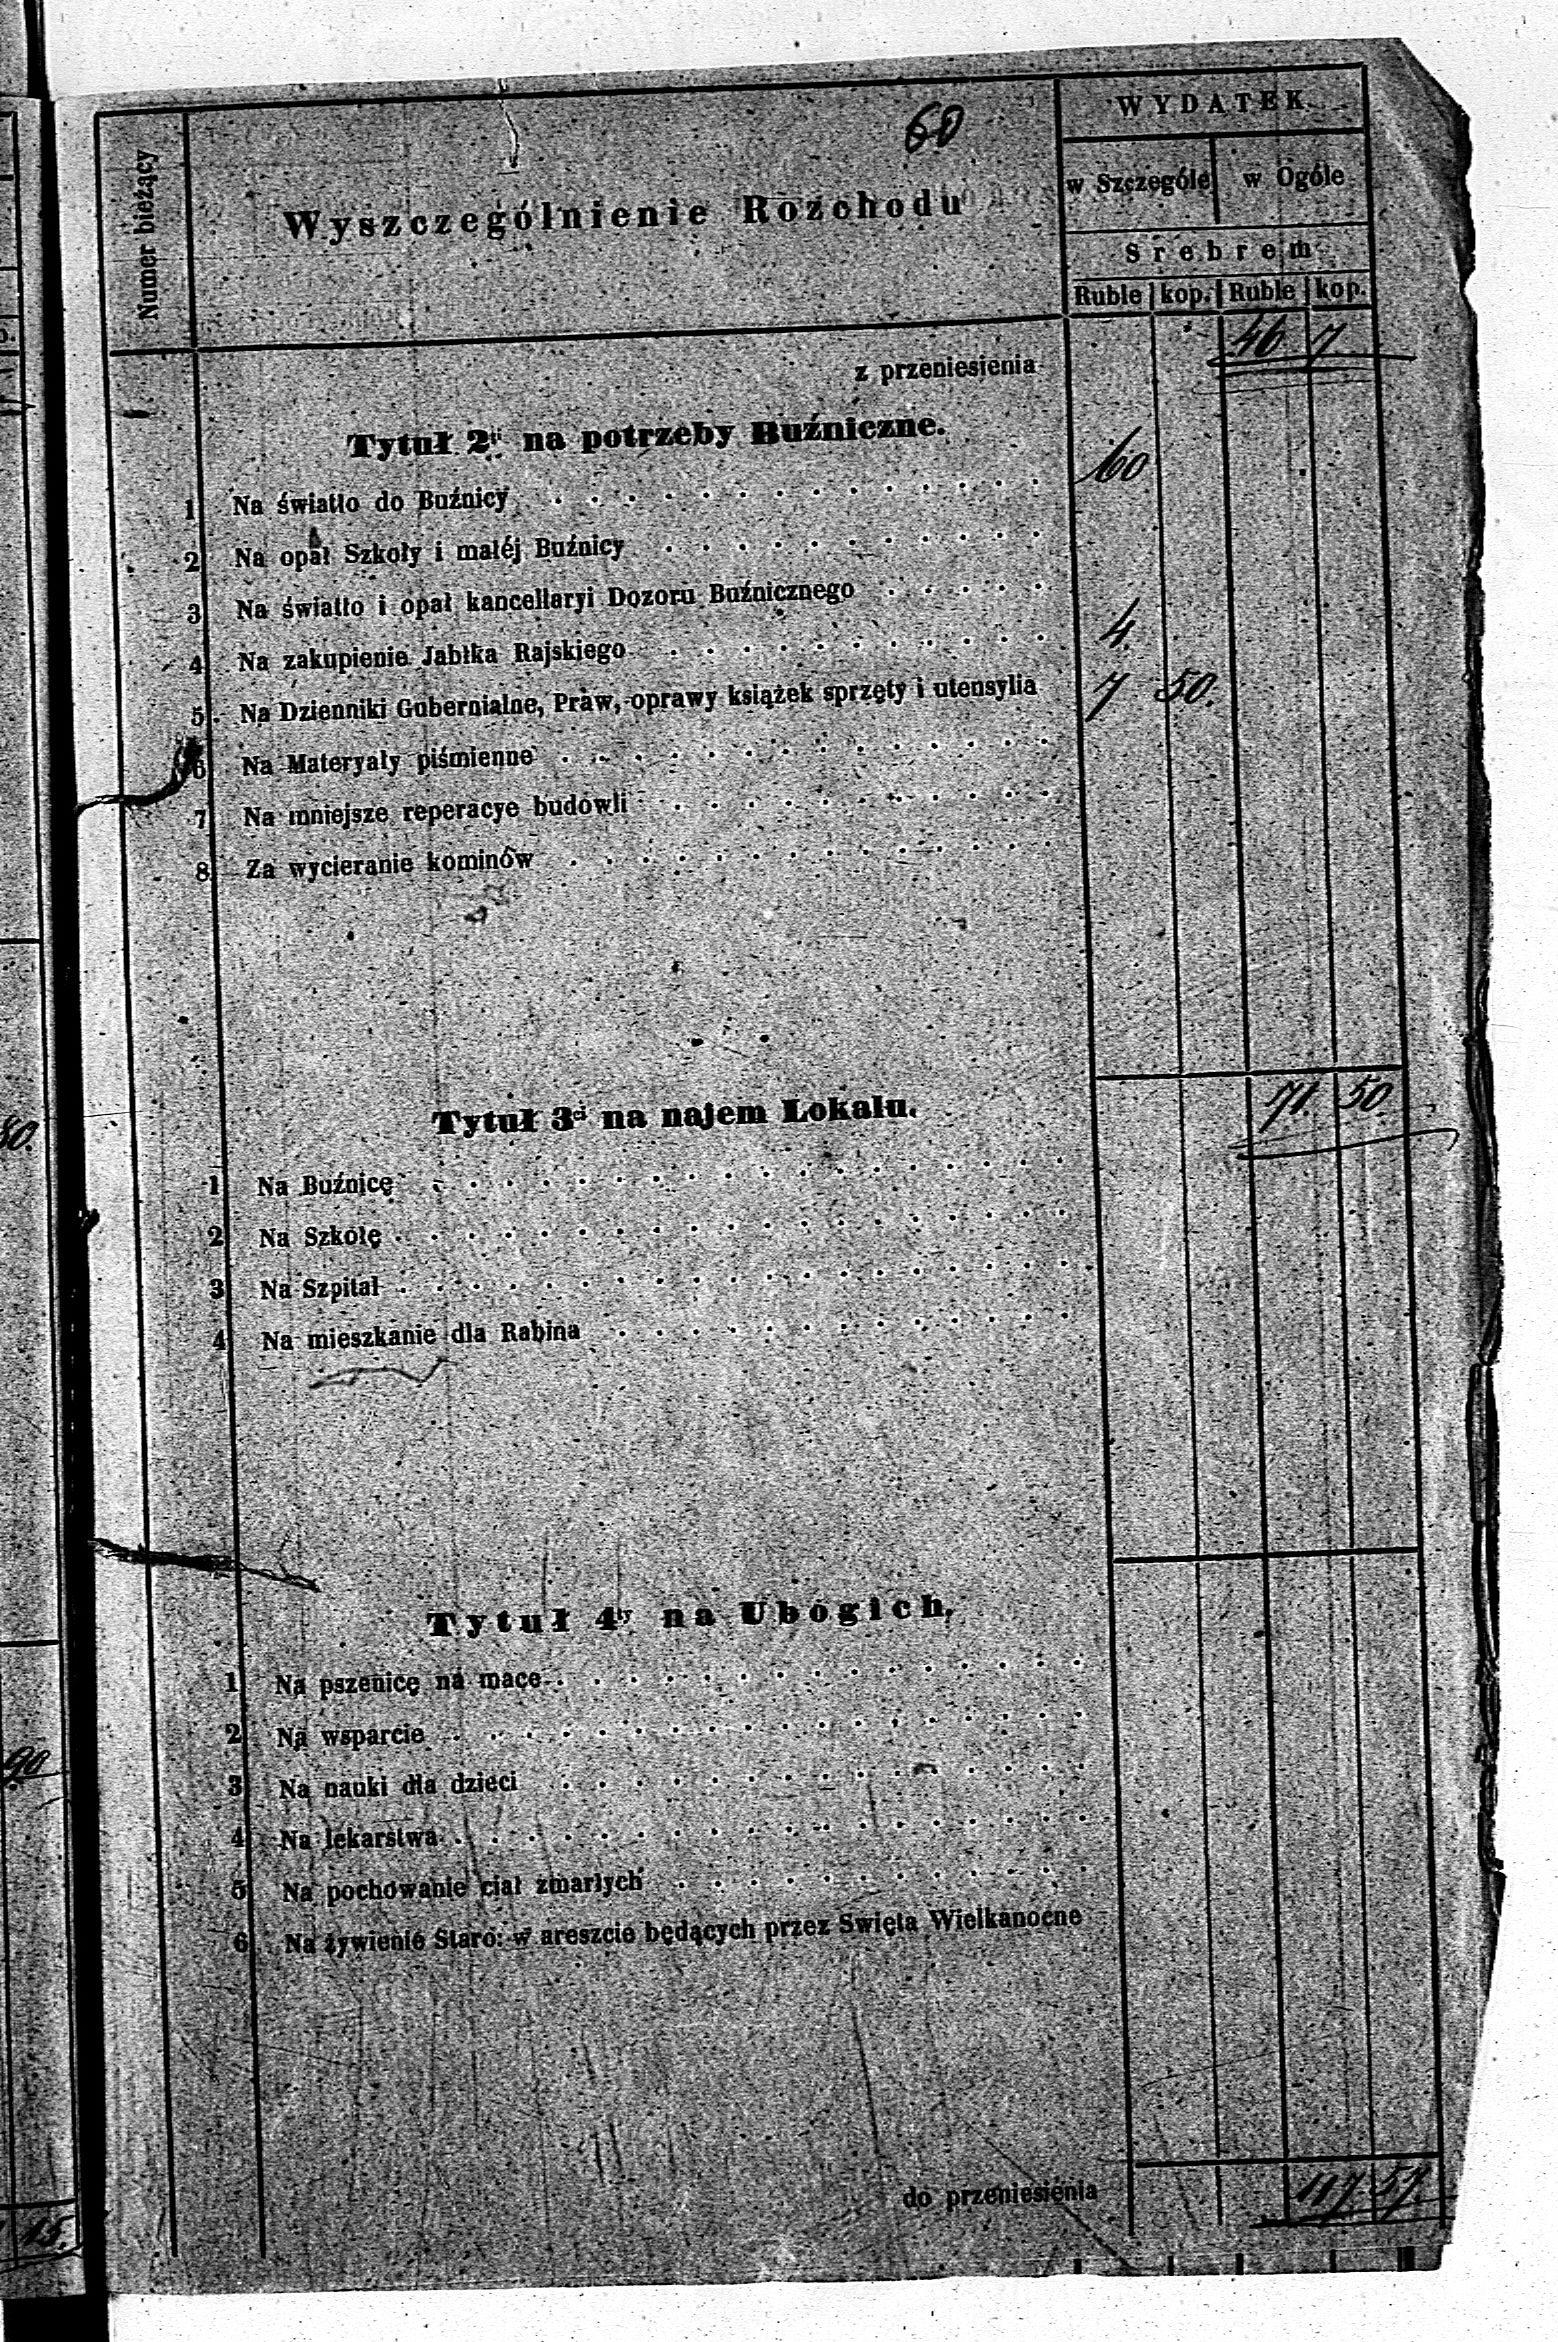 60
WYDATEK
Numer bieżący
Wyszczególnienie Rozchodu
w Szczególe w Ogóle
Srebrem
Ruble kop. Ruble kop.
z przeniesienia 46 7
Tytuł 2gi na potrzeby Buźniczne.
1 Na światło do Buźnicy 60
2 Na opał Szkoły i małéj Buźnicy
3 Na światło i opał kancellaryi Dozoru Buźnicznego
4 Na zakupienie Jabłka Rajskiego 4
5 Na Dzienniki Gubernialne, Praw, oprawy książek sprzęty i utensylia 7 50.
6 Na Materyały piśmienne
7 Na mniejsze reperacye budowli
8 Za wycieranie kominów
71. 50
Tytuł 3ci na najem Lokalu.
1 Na Buźnicę
2 Na Szkołę
3 Na Szpital
4 Na mieszkanie dla Rabina
Tytuł 4ty na Ubogich.
1 Na pszenicę na mace
2 Na wsparcie
3 Na nauki dla dzieci
4 Na lekarstwa
5 Na pochowanie ciał zmarłych
6 Na żywienie Staro: w areszcie będących przez Swięta Wielkanocne
do przeniesienia 117 57.